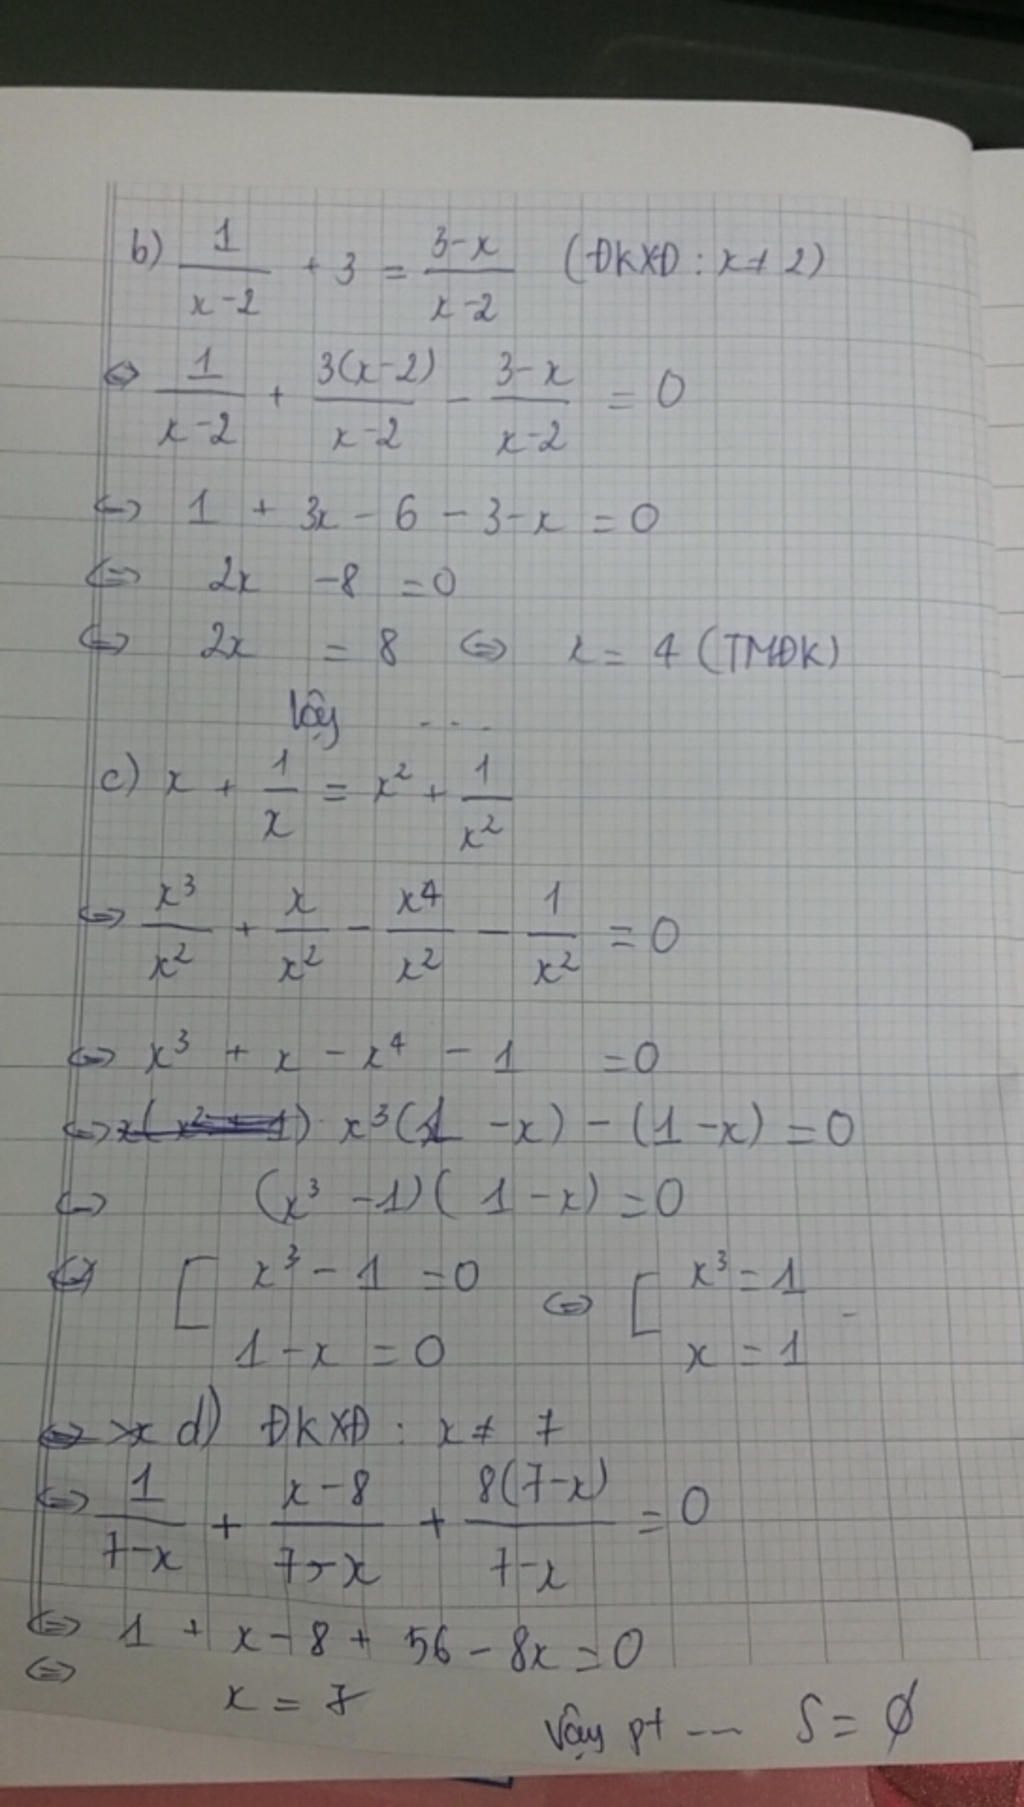 b) 1/(x-2) + 3 = (3-x)/(x-2) (ĐKXĐ : x ≠ 2)
⇔ 1/(x-2) + 3(x-2)/(x-2) - (3-x)/(x-2) = 0
⇔ 1 + 3x - 6 - 3 - x = 0
⇔ 2x - 8 = 0
⇔ 2x = 8 ⇔ x = 4 (TMĐK)
Vậy ....
c) x + 1/x = x² + 1/x²
⇔ x³/x² + x/x² - x⁴/x² - 1/x² = 0
⇔ x³ + x - x⁴ - 1 = 0
⇔ x(x² + 1) x³(1 - x) - (1 - x) = 0
⇔ (x³ - 1)(1 - x) = 0
⇔ [ x³ - 1 = 0 ⇔ [ x³ = 1
1 - x = 0 x = 1
⇔ x d) ĐKXĐ : x ≠ 7
⇔ 1/(7-x) + (x-8)/(7-x) + 8(7-x)/(7-x) = 0
⇔ 1 + x - 8 + 56 - 8x = 0
⇔ x = 7
Vậy pt --- S = ∅